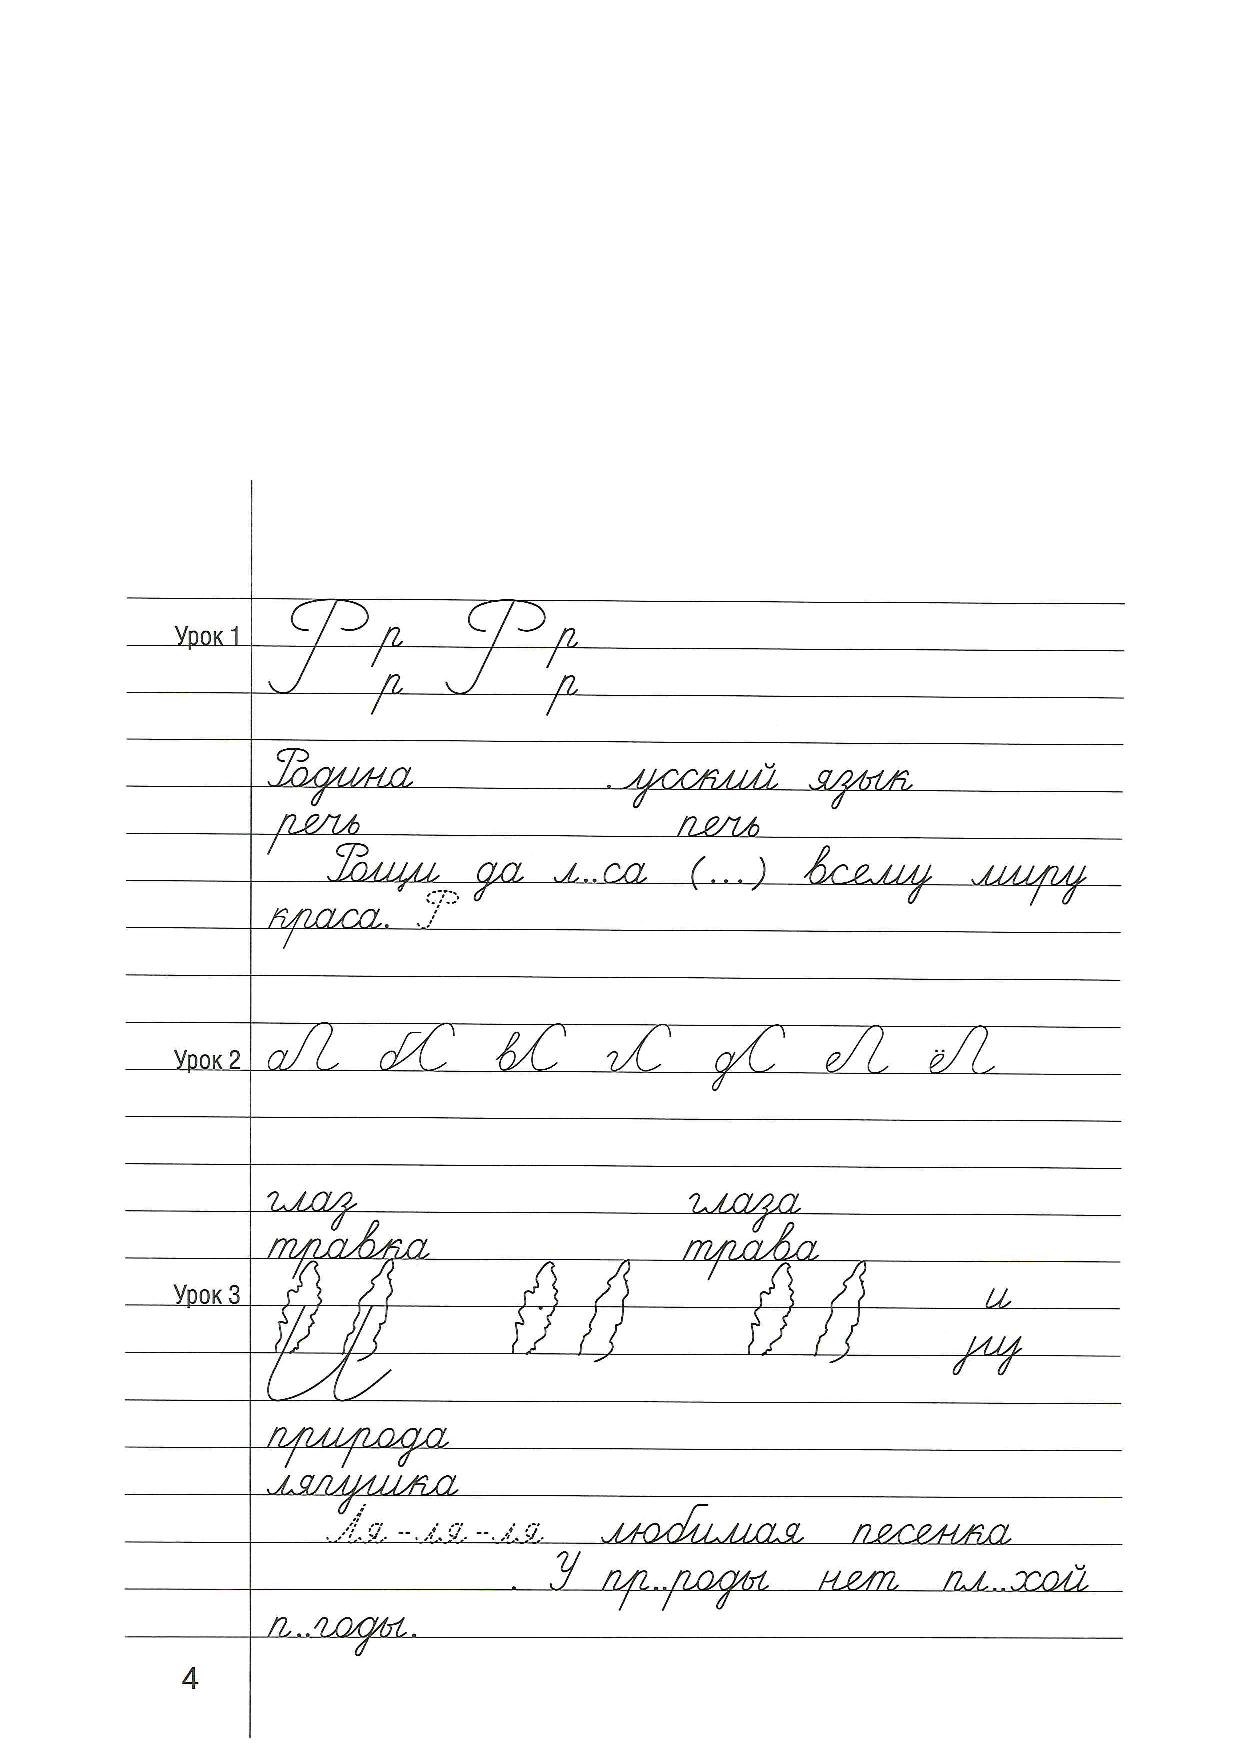 Урок 1 Р р Р р
р р
Родина . усский язык
речь печь
Рощи да л..са (...) всему миру
краса. Р
Урок 2 аЛ бС вС гС дС еЛ ёЛ
глаз глаза
травка трава
Урок 3 и
ри
природа
лягушка
Ля-ля-ля любимая песенка
. У пр..роды нет пл..хой
п..годы.
4